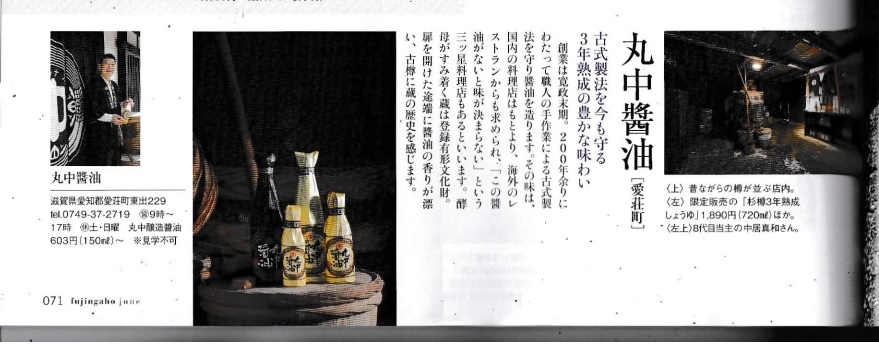 丸中醬油
[愛荘町]
古式製法を今も守る
3年熟成の豊かな味わい
創業は寛政末期。200年余りに
わたって職人の手作業による古式製
法を守り醤油を造ります。その味は、
国内の料理店はもとより、海外のレ
ストランからも求められ、「この醤
油がないと味が決まらない」という
三ッ星料理店もあるといいます。酵
母がすみ着く蔵は登録有形文化財。
扉を開けた途端に醤油の香りが漂
い、古樽に蔵の歴史を感じます。
〈上〉昔ながらの樽が並ぶ店内。
〈左〉限定販売の「杉樽3年熟成
しょうゆ」1,890円(720㎖)ほか。
〈左上〉8代目当主の中居真和さん。
丸中醤油
滋賀県愛知郡愛荘町東出229
tel.0749-37-2719 ㊠9時〜
17時 ㊡土・日曜 丸中醸造醤油
603円(150㎖)〜 ※見学不可
071 fujingaho june